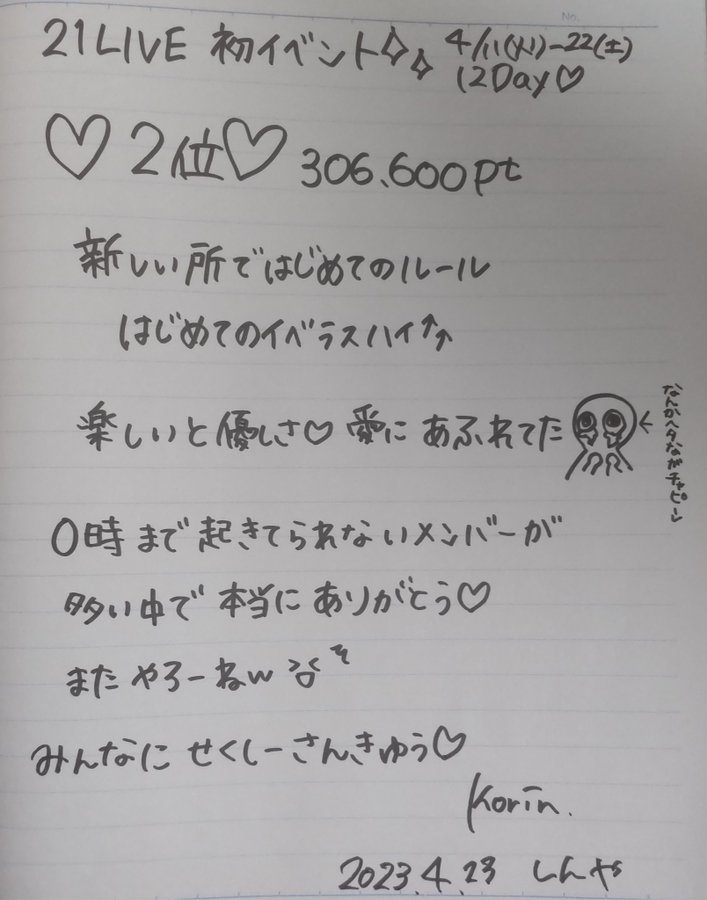 No.
21LIVE 初イベント✧✧ 4/11(火)-22(土)
12Day♡
♡2位♡ 306.600pt
新しい所ではじめてのルール
はじめてのイベラスハイ↑↑
楽しいと優しさ♡愛に あふれてた
←なんかヘタなガチャピン
0時まで起きてられないメンバーが
多い中で 本当に ありがとう♡
また やろーねw
みんなに せくしーさんきゅう♡
Korin.
2023.4.23 しんや